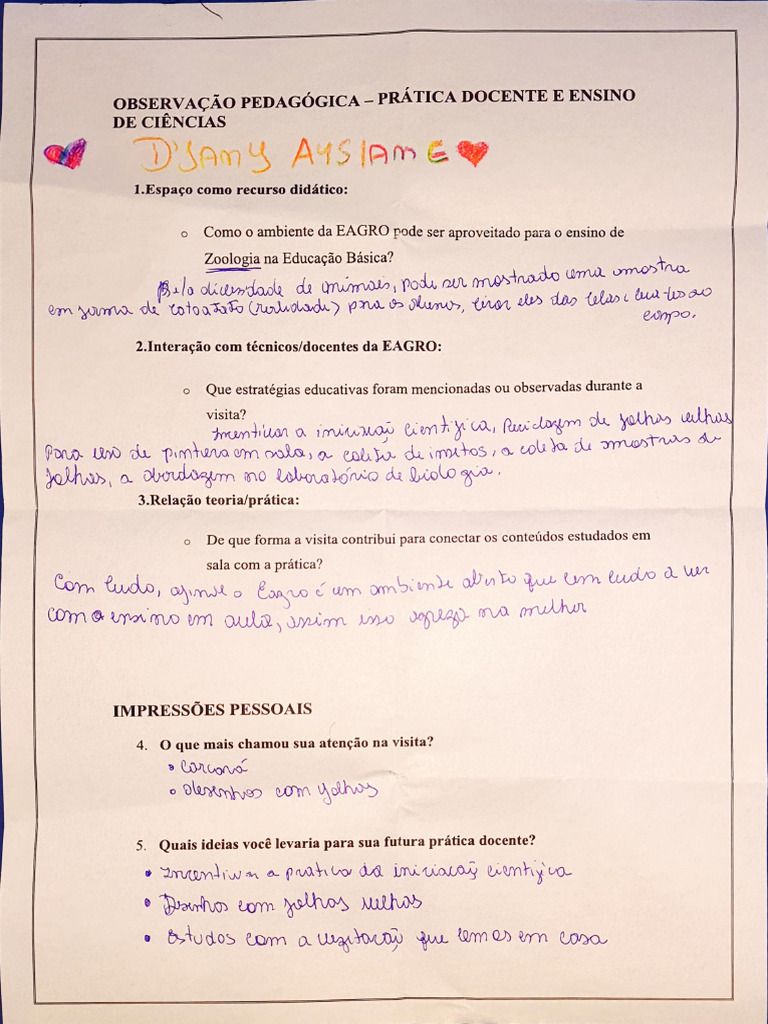 OBSERVAÇÃO PEDAGÓGICA – PRÁTICA DOCENTE E ENSINO
DE CIÊNCIAS
D'JANY AYSLANE
1.Espaço como recurso didático:
o Como o ambiente da EAGRO pode ser aproveitado para o ensino de
Zoologia na Educação Básica?
Pela diversidade de animais, pode ser mostrado uma amostra
em forma de (realidade) para os alunos, tirar eles das telas e leva-los ao
campo.
2.Interação com técnicos/docentes da EAGRO:
o Que estratégias educativas foram mencionadas ou observadas durante a
visita?
Incentivar a iniciação científica, Reciclagem de folhas velhas
Para uso de pintura em sala, a coleta de insetos, a coleta de amostras de
folhas, a abordagem no laboratório de biologia.
3.Relação teoria/prática:
o De que forma a visita contribui para conectar os conteúdos estudados em
sala com a prática?
Com tudo, o Eagro é um ambiente aberto que tem tudo a ver
com o ensino em aula, assim isso agrega na melhor
IMPRESSÕES PESSOAIS
4. O que mais chamou sua atenção na visita?
• Carcará
• desenhos com folhas
5. Quais ideias você levaria para sua futura prática docente?
• Incentivar a pratica da iniciação científica
• Desenhos com folhas velhas
• Estudos com a vegetação que temos em casa